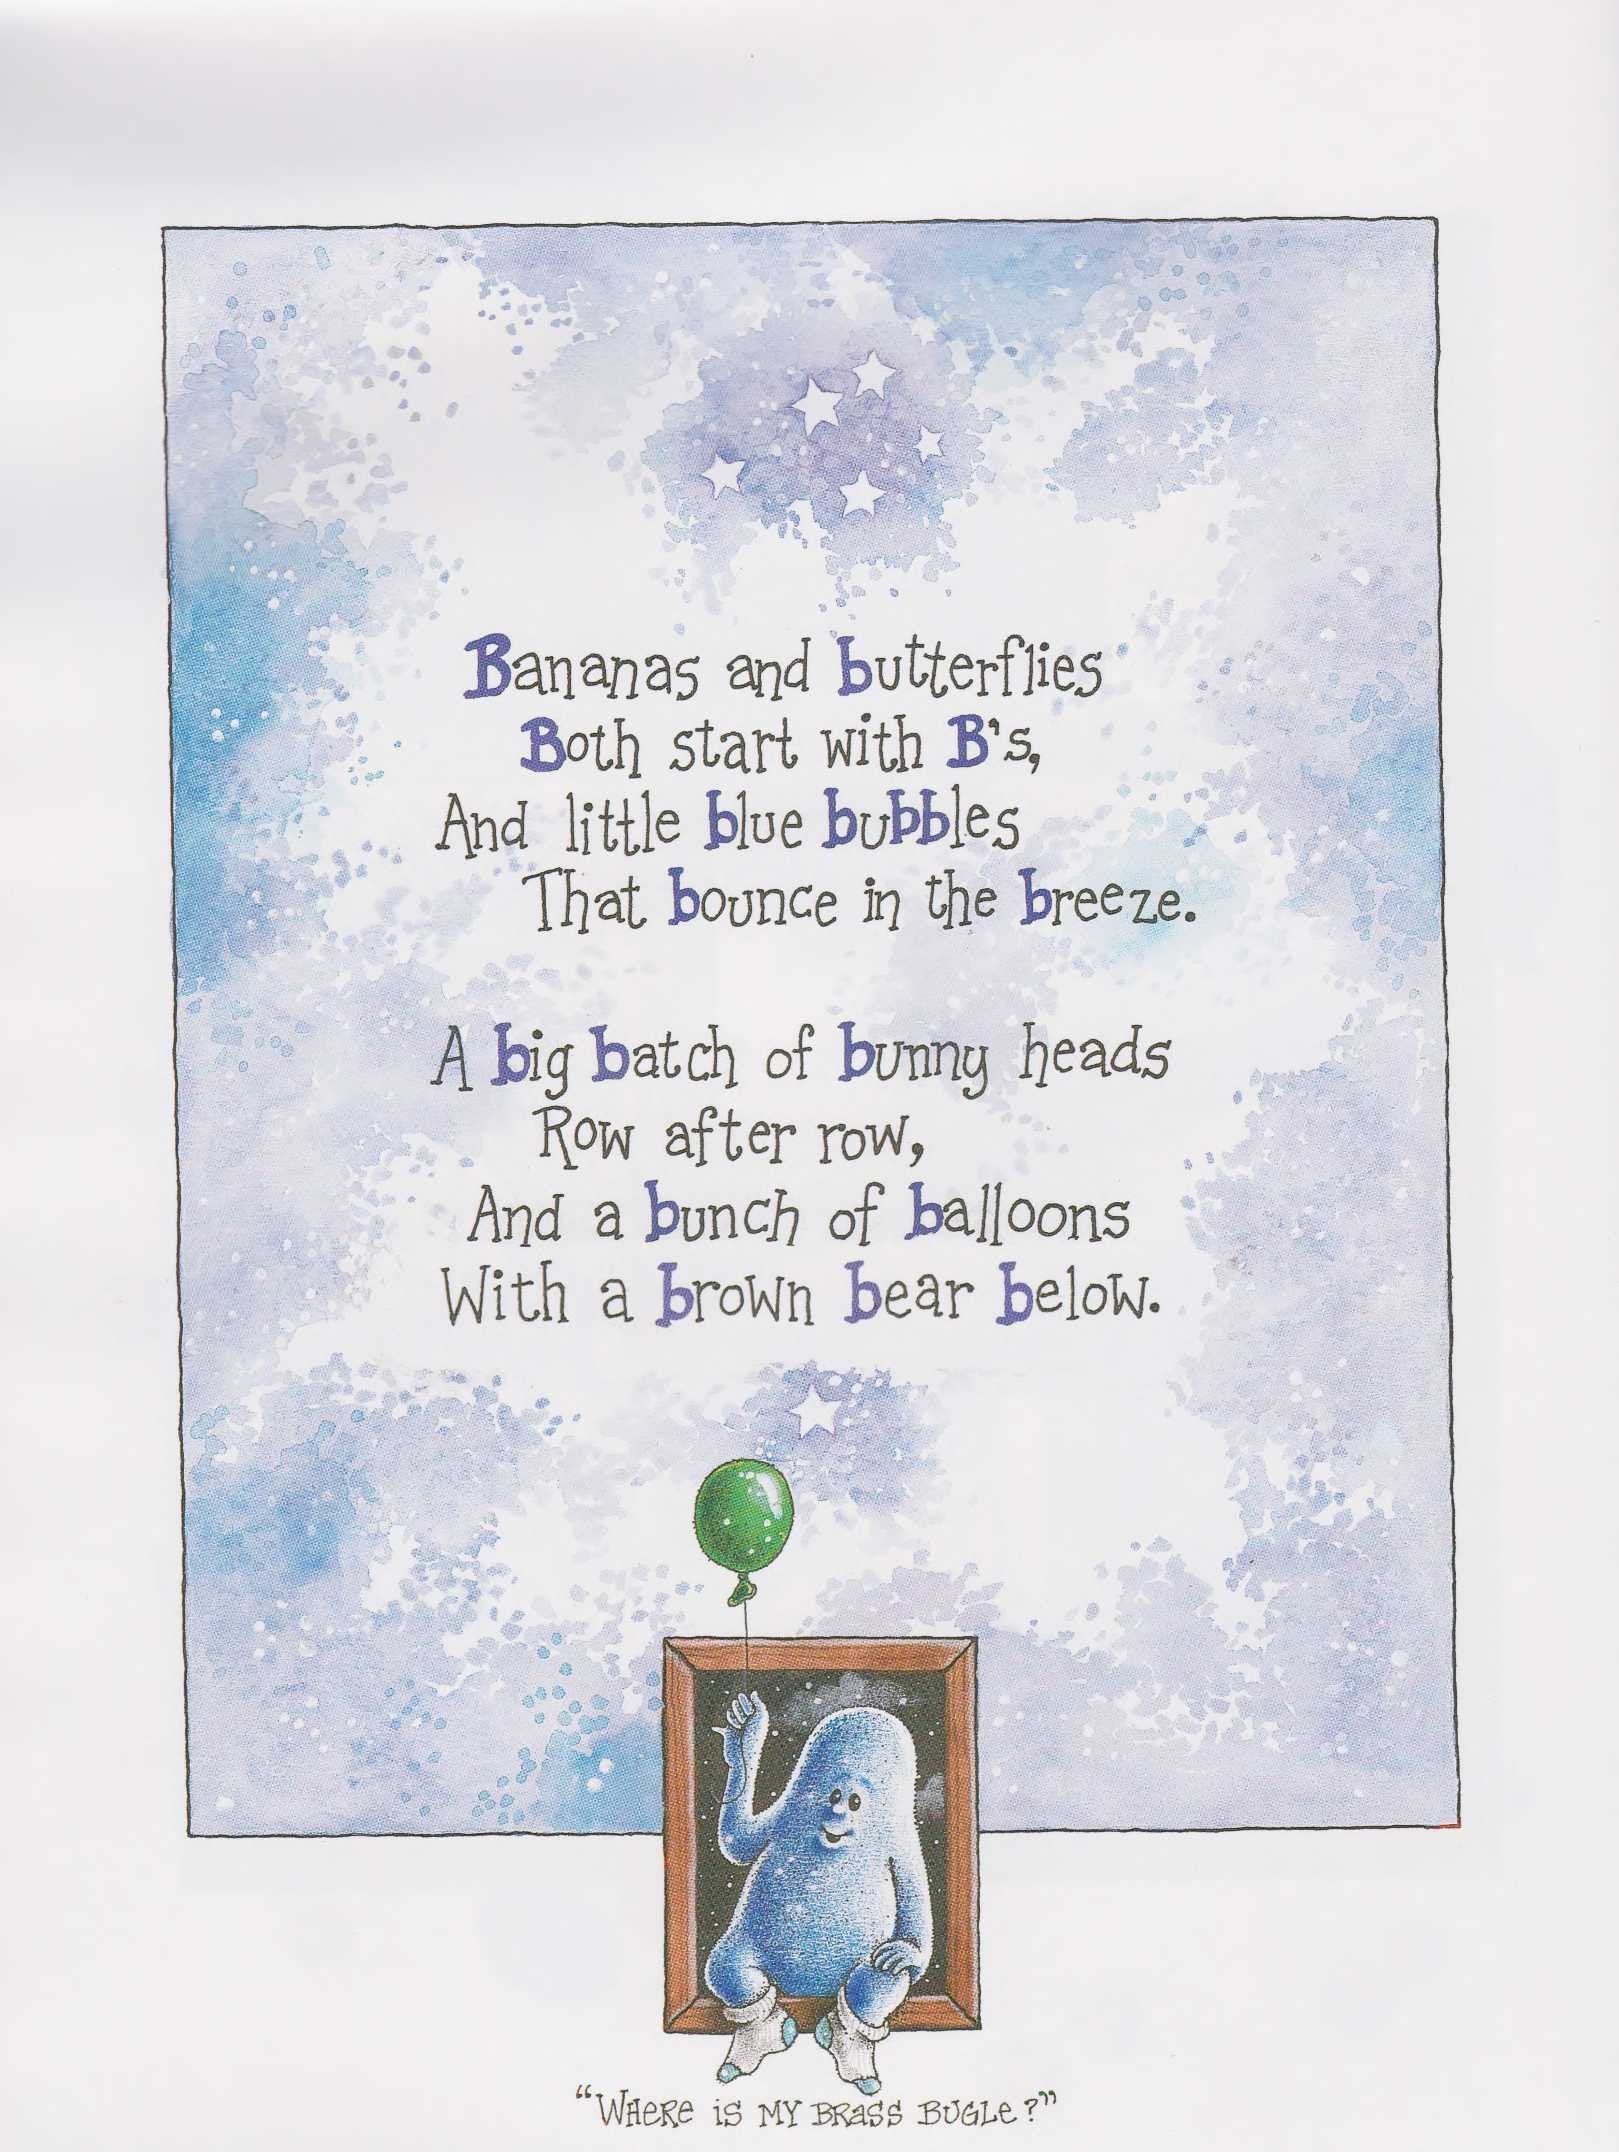 Bananas and butterflies
Both start with B's,
And little blue bubbles
That bounce in the breeze.
A big batch of bunny heads
Row after row,
And a bunch of balloons
With a brown bear below.
"WHeRe iS MY BRaSS BUGLe?"